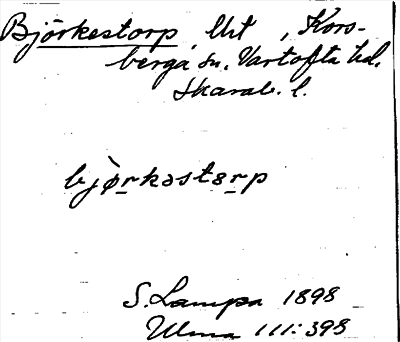 Björkestorp, Utt, Kors-
berga sn. Vartofta hd.
Skarab. l.
bjørkəstorp
S. Lampa 1898
Ulma 111:398